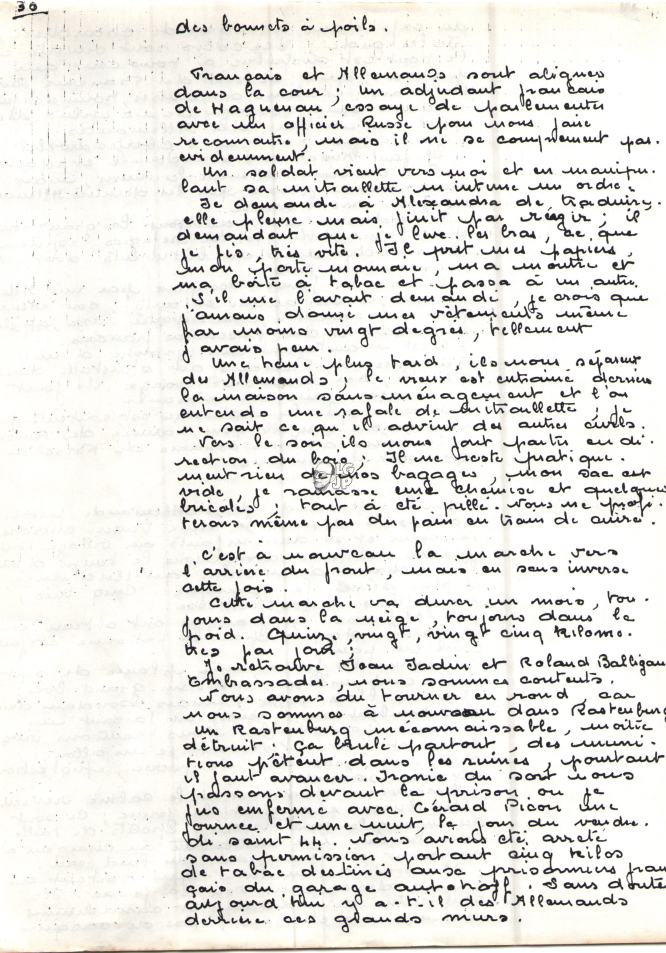 30
des bonnets à poils.
Français et Allemands sont alignés
dans la cour ; un adjudant français
de Haguenau, essaye de parlementer
avec un officier Russe pour nous faire
reconnaitre, mais il ne se comprennent pas.
evidemment.
Un soldat vient vers moi et en manipu.
lant sa mitraillette m'intime un ordre.
Je demande à Alexandra de traduire.
elle pleure mais finit par réagir ; il
demandait que je lève les bras, ce que
je fis très vite. Il prit mes papiers,
mon porte monnaie, ma montre et
ma boîte à tabac et passa à un autre.
S'il me l'avait demandé, je crois que
j'amais donné mes vêtements même
par moins vingt degrés, tellement
j'avais peur.
Une heure plus tard, ils nous séparent
des Allemands ; le vieux est entrainé derrière
la maison sans ménagement et l'on
entends une rafale de mitraillette ; je
ne sait ce qu'il advint des autres civils.
Vers le soir ils nous font partir en di.
rection du bois. Il ne reste pratique.
ment rien de nos bagages, mon sac est
vide, je ramasse une chemise et quelques
bricoles ; tout à été pillé. Nous ne profi.
terons même pas du pain en train de cuire.
C'est à nouveau la marche vers
l'arrière du front, mais en sens inverse
cette fois.
Cette marche va durer un mois, tou.
jours dans la neige, toujours dans le
froid. Quinze, vingt, vingt cinq kilomè.
tres par jour.
Je retrouve Jean Jadin et Roland Balligan
Embrassades, nous sommes contents.
Nous avons du tourner en rond car
nous sommes à nouveau dans Rastenburg
un Rastenburg méconnaissable, moitié
détruit. Ça brulé partout, des muni.
tions pètent dans les ruines, pourtant
il faut avancer. Ironie du sort nous
passons devant la prison ou je
fus enfermé avec Gérard Pison une
journée et une nuit, le jour du vendre.
di saint 44. Nous avions été arreté
sans permission portant cinq kilos
de tabac destinés aux prisonniers fran
çais du garage autohoff. Sans doute
aujourd'hui y a-t-il des Allemands
derrière ces grands murs.
LG
JP